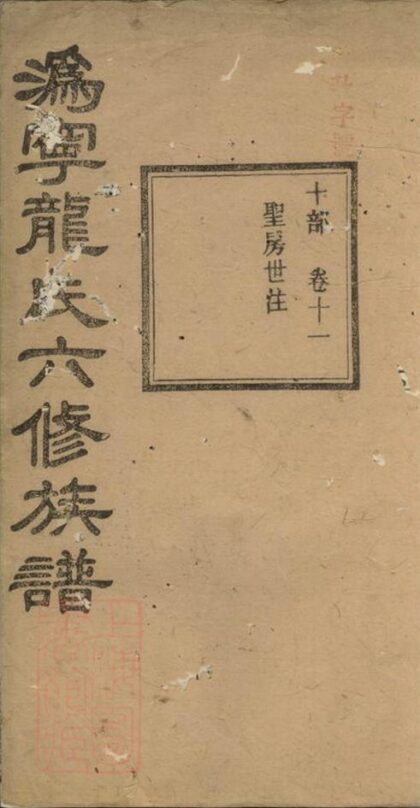 溈寧龍氏六修族譜
十部 卷十一
聖房世注